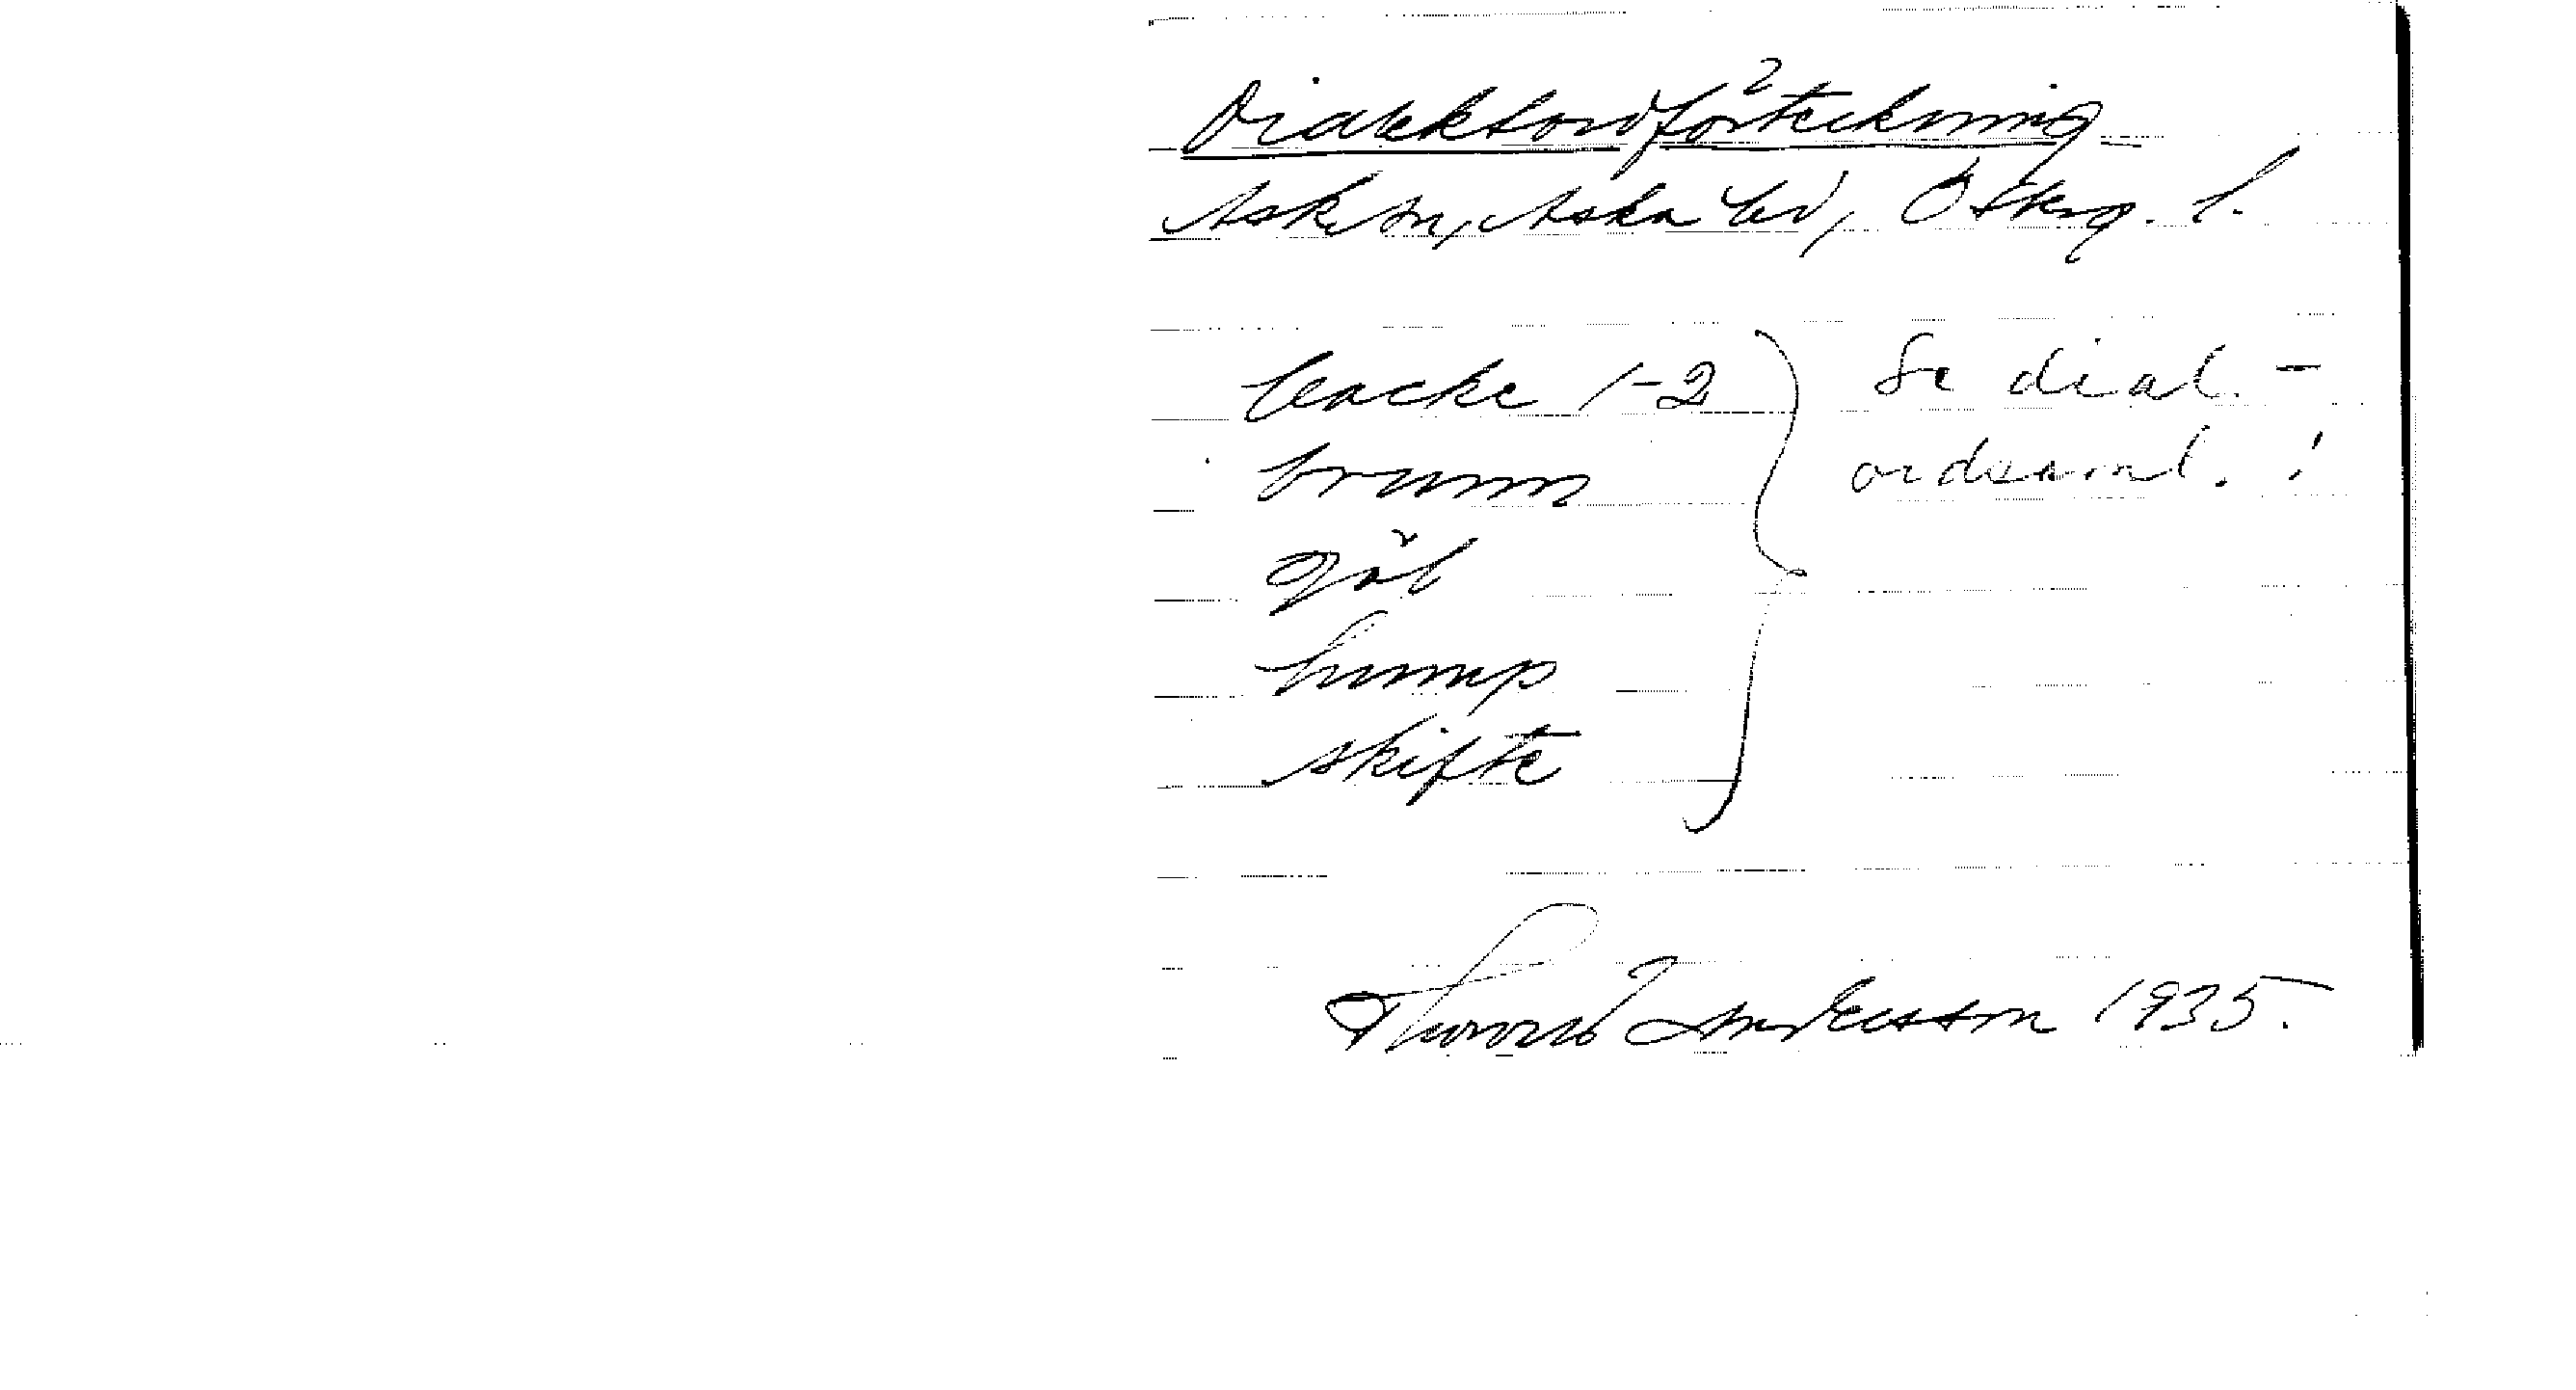 Dialektordförteckning
Ask sn, Aska hd, Östrg. l.
backe 1-2
brunn
göl
hump
skifte
Se dial.-
ordsaml. !
Thorord Andersson 1935.